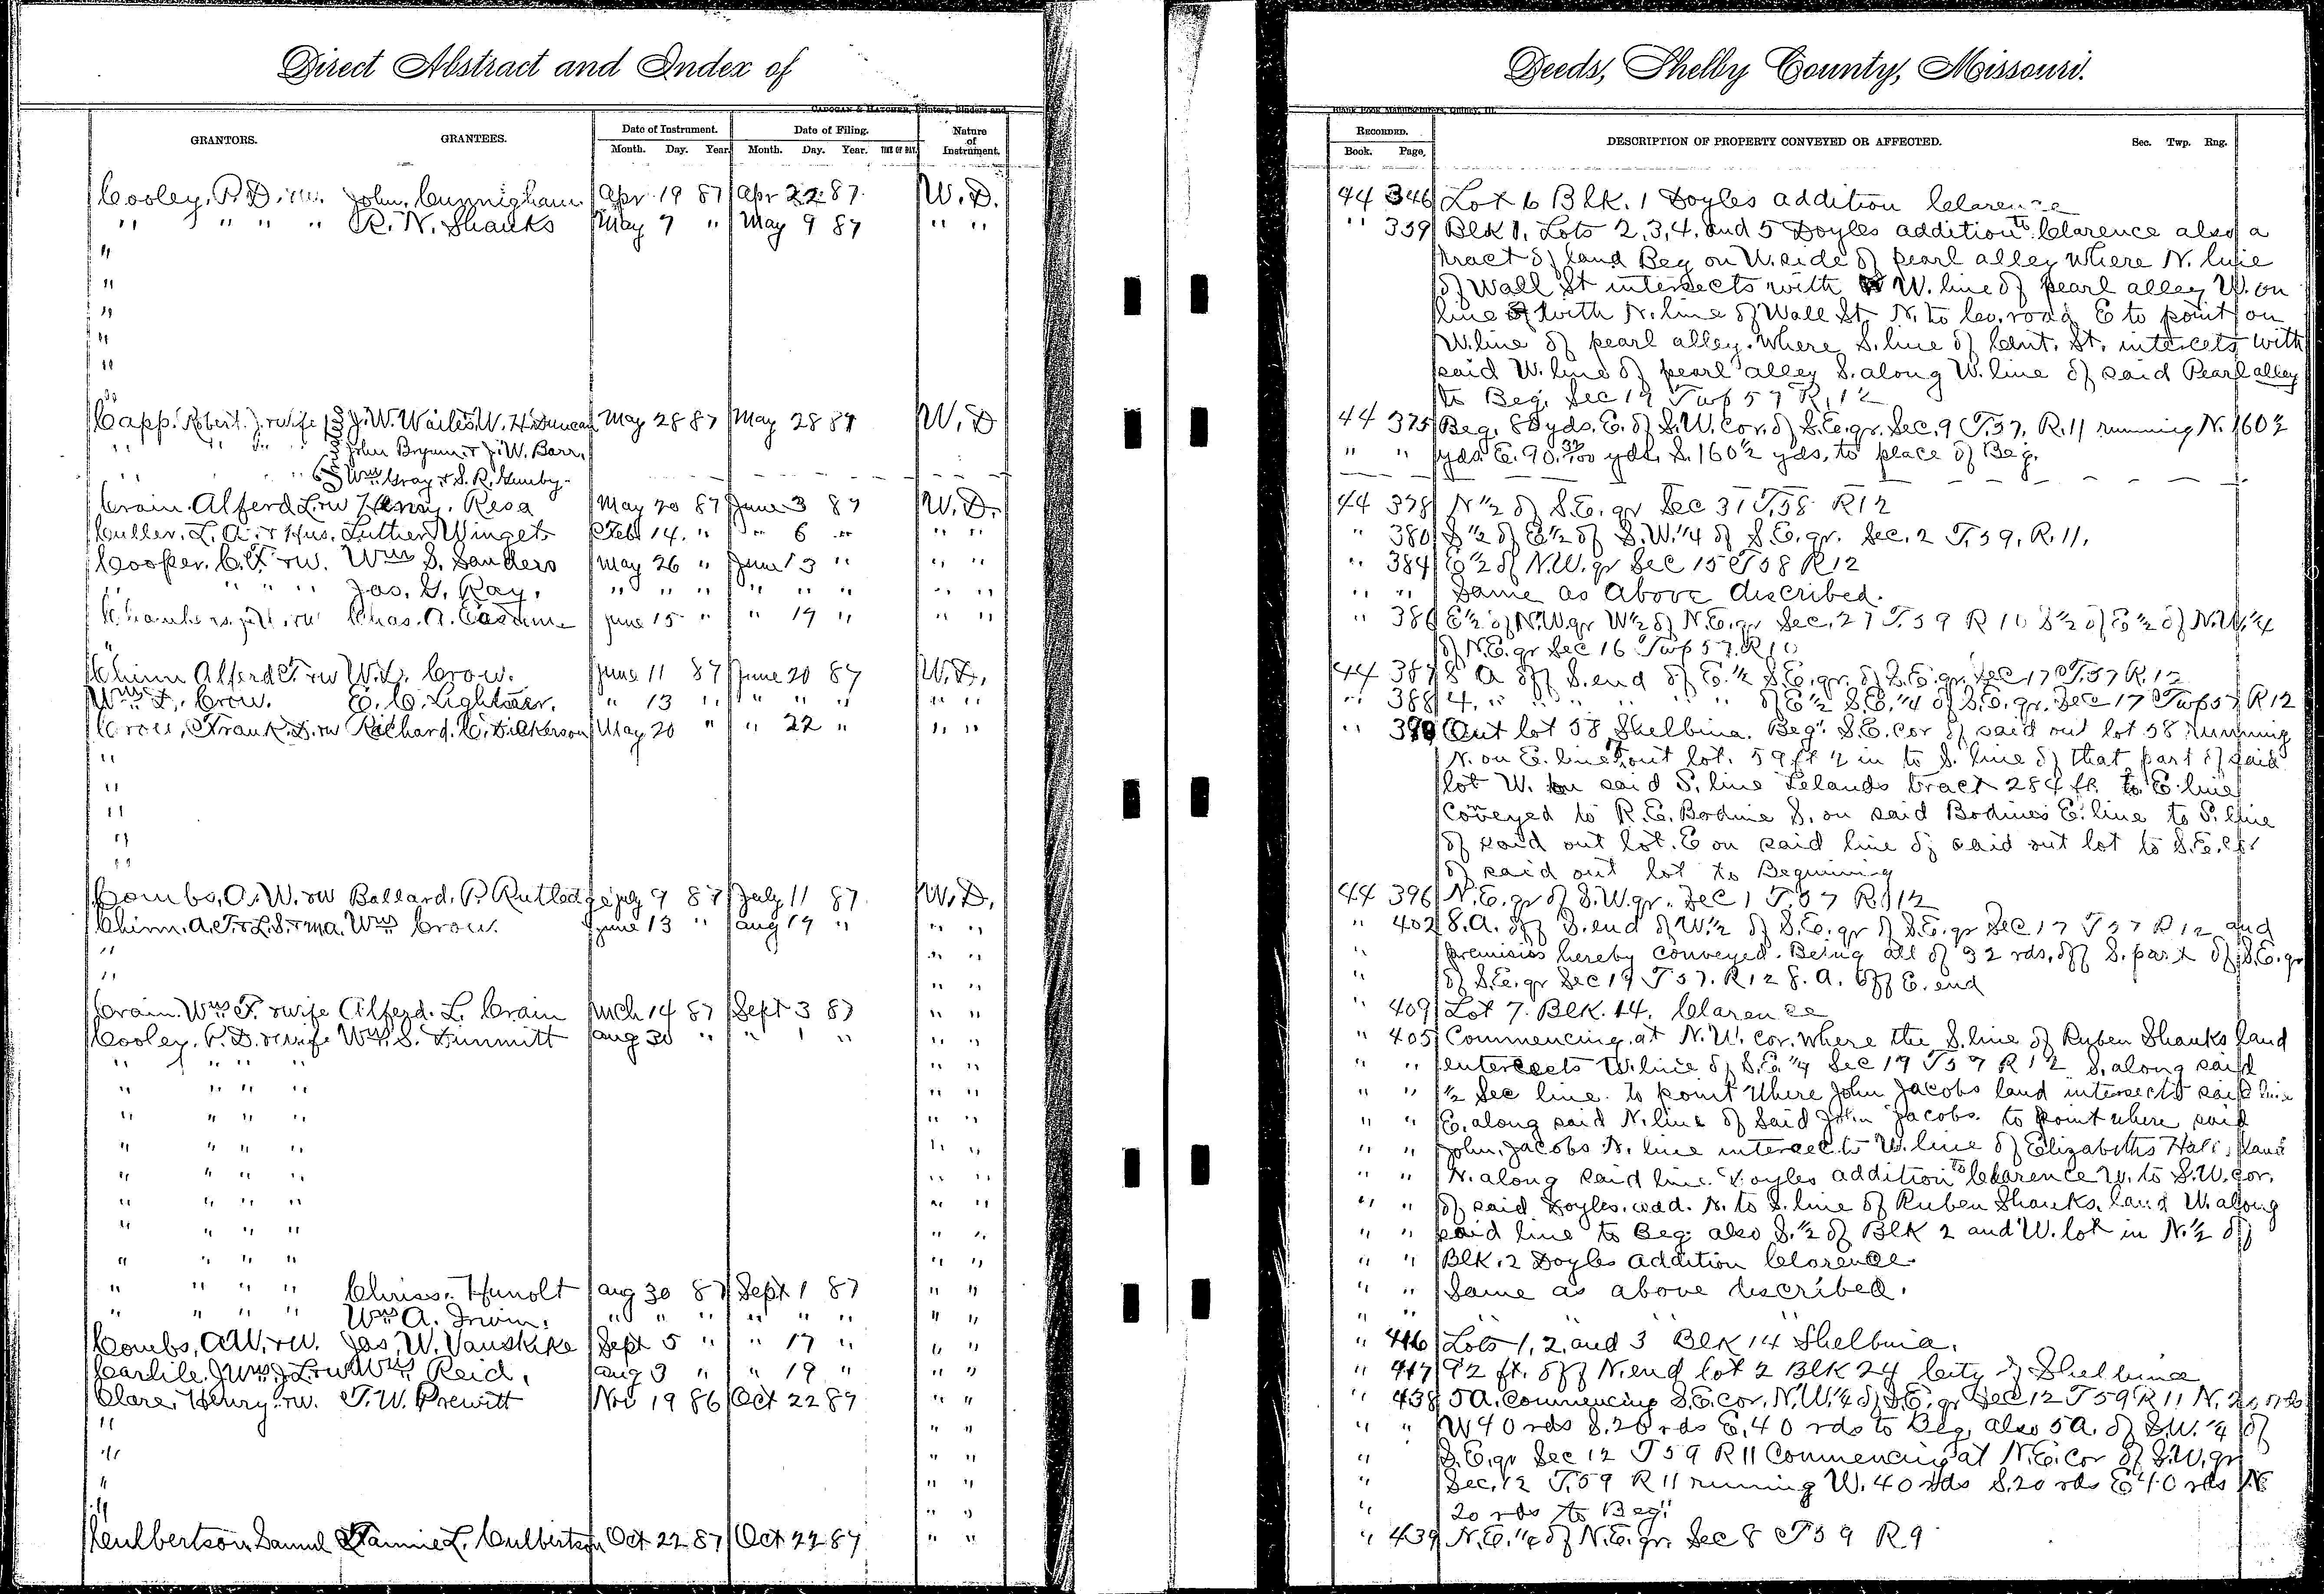 Direct Abstract and Index of
Deeds, Shelby County, Missouri.
CADOGAN & HATCHER, Printers, Binders and
Blank Book Manufacturers, Quincy, Ill.
GRANTORS. GRANTEES. Date of Instrument. Date of Filing. Nature of Instrument.
Month. Day. Year. Month. Day. Year. TIME OF DAY.
RECORDED. DESCRIPTION OF PROPERTY CONVEYED OR AFFECTED. Sec. Twp. Rng.
Book. Page.
Cooley, P. D. + w. John, Cunnigham Apr 19 87 Apr 22 87 W. D. 44 346 Lot 6 Blk. 1 Doyles addition Clarence
" " " " R. N. Shanks May 7 " May 9 87 " " " 359 Blk 1, Lots 2, 3, 4, and 5 Doyles addition to Clarence also a
" tract of land Beg on W. side of pearl alley where N. line
" of Wall St intersects with W. line of pearl alley W. on
" line with N. line of Wall St. N. to Co. road E to point on
" W. line of pearl alley. where S. line of St. intersects with
" said W. line of pearl alley S. along W. line of said Pearl alley
" to Beg. Sec 19 Twp 57 R. 12
Capp. Robert. J. + wife J. W. Wailes, W. H. Duncan May 28 87 May 28 87 W. D 44 375 Beg. 88 yds. E. of S. W. cor. of S. E. qr. Sec. 9 T. 57. R. 11 running N. 160½
" " John Brynum + J. W. Barr. " " yds. E. 90. 32/100 yds. S. 160½ yds. to place of Beg.
" " Trustees Wm Gray + S. R.
Crain. Alferd L. + w Henry. Resa May 20 87 June 3 87 W. D. 44 378 N ½ of S. E. qr Sec 31 T. 58 R 12
Culler. L. A. + Hus. Luther Winget Feb 14. " " 6 " " " " 380 S ½ of E ½ of S. W. ¼ of S. E. qr. Sec. 2 T. 59. R. 11.
Cooper. C. F + w. Wm S. Sanders May 26 " June 13 " " " " 384 E ½ of N. W. qr Sec 15 T 58 R 12
" " " Jas. G. Ray. " " " " " " " " " " Same as Above discribed.
Chambers + w Chas. A. June 15 " " 19 " " " " 386 E ½ of N. W. qr W ½ of N. E. qr Sec. 27 T. 59 R 10 S ½ of E ½ of N. W. ¼
of N. E. qr Sec 16 Twp 57. R 10
Chinn Alferd T. + w W. L. Crow. June 11 87 June 20 87 W. D. 44 387 8 A off S. end of E. ½ S. E. qr. of S. E. qr. Sec 17 T. 57 R. 12
Wm L. Crow. E. C. Lightner. " 13 " " " " " " " 388 4. " " " " " of E ½ S. E. ¼ of S. E. qr. Sec 17 Twp 57 R 12
Cross, Frank. D. + w Richard. C. Dickerson May 20 " " 22 " " " " 390 Out lot 58 Shelbina. Beg. S. E. cor of said out lot 58 running
" N. on E. line out lot. 59 ft ½ in to S. line of that part of said
" lot W. on said S. line Lelands tract 284 ft. to E. line
" Conveyed to R. E. Bodine S. on said Bodines E. line to S. line
" of said out lot. E on said line of said out lot to S. E. cor
" of said out lot to Beginning
Combs, A. W. + w Ballard. P. Rutledge July 9 87 July 11 87 W. D. 44 396 N. E. qr of S. W. qr. Sec 1 T. 57 R. 12
Chinn. A. T. + L. S. + ma. Wm Crow. June 13 " Aug 19 " " " " 402 8. A. off S. end of W. ½ of S. E. qr of S. E. qr Sec 17 T 57 R 12 and
" " " " premisies hereby conveyed. Being all of 32 rds. off S. part of S. E. qr
" " " " of S. E. qr Sec 19 T 57. R 12 8. A. off E. end
Crain. Wm F. + wife Alferd. L. Crain Mch 14 87 Sept 3 87 " " " 409 Lot 7. Blk. 14. Clarence
Cooley. P. D. + wife Wm S. Dimmitt Aug 30 " " 1 " " " " 405 Commencing at N. W. cor. where the S. line of Ruben Shanks land
" " " " " " " " intersects W. line of S. E. ¼ Sec 19 T 57 R 12 S. along said
" " " " " " " " ½ Sec line. to point Where John Jacobs land intersects said line
" " " " " " " " E. along said N. line of Said John Jacobs. to point where said
" " " " " " " " John. Jacobs N. line intersects W. line of Elizabeths land
" " " " " " " " N. along said line. Doyles addition to Clarence W. to S. W. cor.
" " " " " " " " of said Doyles. add. N. to S. line of Ruben Shanks. land W. along
" " " " " " " " said line to Beg. also S. ½ of Blk 2 and W. lot in N. ½ of
" " " " " " " " Blk. 2 Doyles addition Clarence
" " " " Chriss. Hunolt Aug 30 87 Sept 1 87 " " " " Same as above described.
" " " " Wm A. Irwin. " " " " " " " " " "
Combs, A. W. + w. Jas. W. Vanskike Sept 5 " " 17 " " " " 416 Lots 1, 2, and 3 Blk 14 Shelbina.
Carlile. J + w Wm Reid. Aug 3 " " 19 " " " " 417 92 ft. off N. end lot 2 Blk 24 City of Shelbina
Clare, Henry. + w. T. W. Prewitt Nov 19 86 Oct 22 87 " " " 438 5 A. Commencing S. E. cor. N. W. ¼ of S. E. qr Sec 12 T 59 R 11 N. 20 rds
" " " " " W 40 rds S. 20 rds E. 40 rds to Beg. also 5 A. of S. W. ¼ of
" " " " S. E. qr Sec 12 T 59 R 11 Commencing at N. E. cor of S. W. qr
" " " " Sec. 12 T. 59 R 11 running W. 40 rds S. 20 rds E 40 rds N
" " " " 20 rds to Beg.
Culbertson Samuel Fannie L. Culbertson Oct 22 87 Oct 22 87 " " " 439 N. E. ¼ of N. E. qr. Sec 8 T 59 R 9